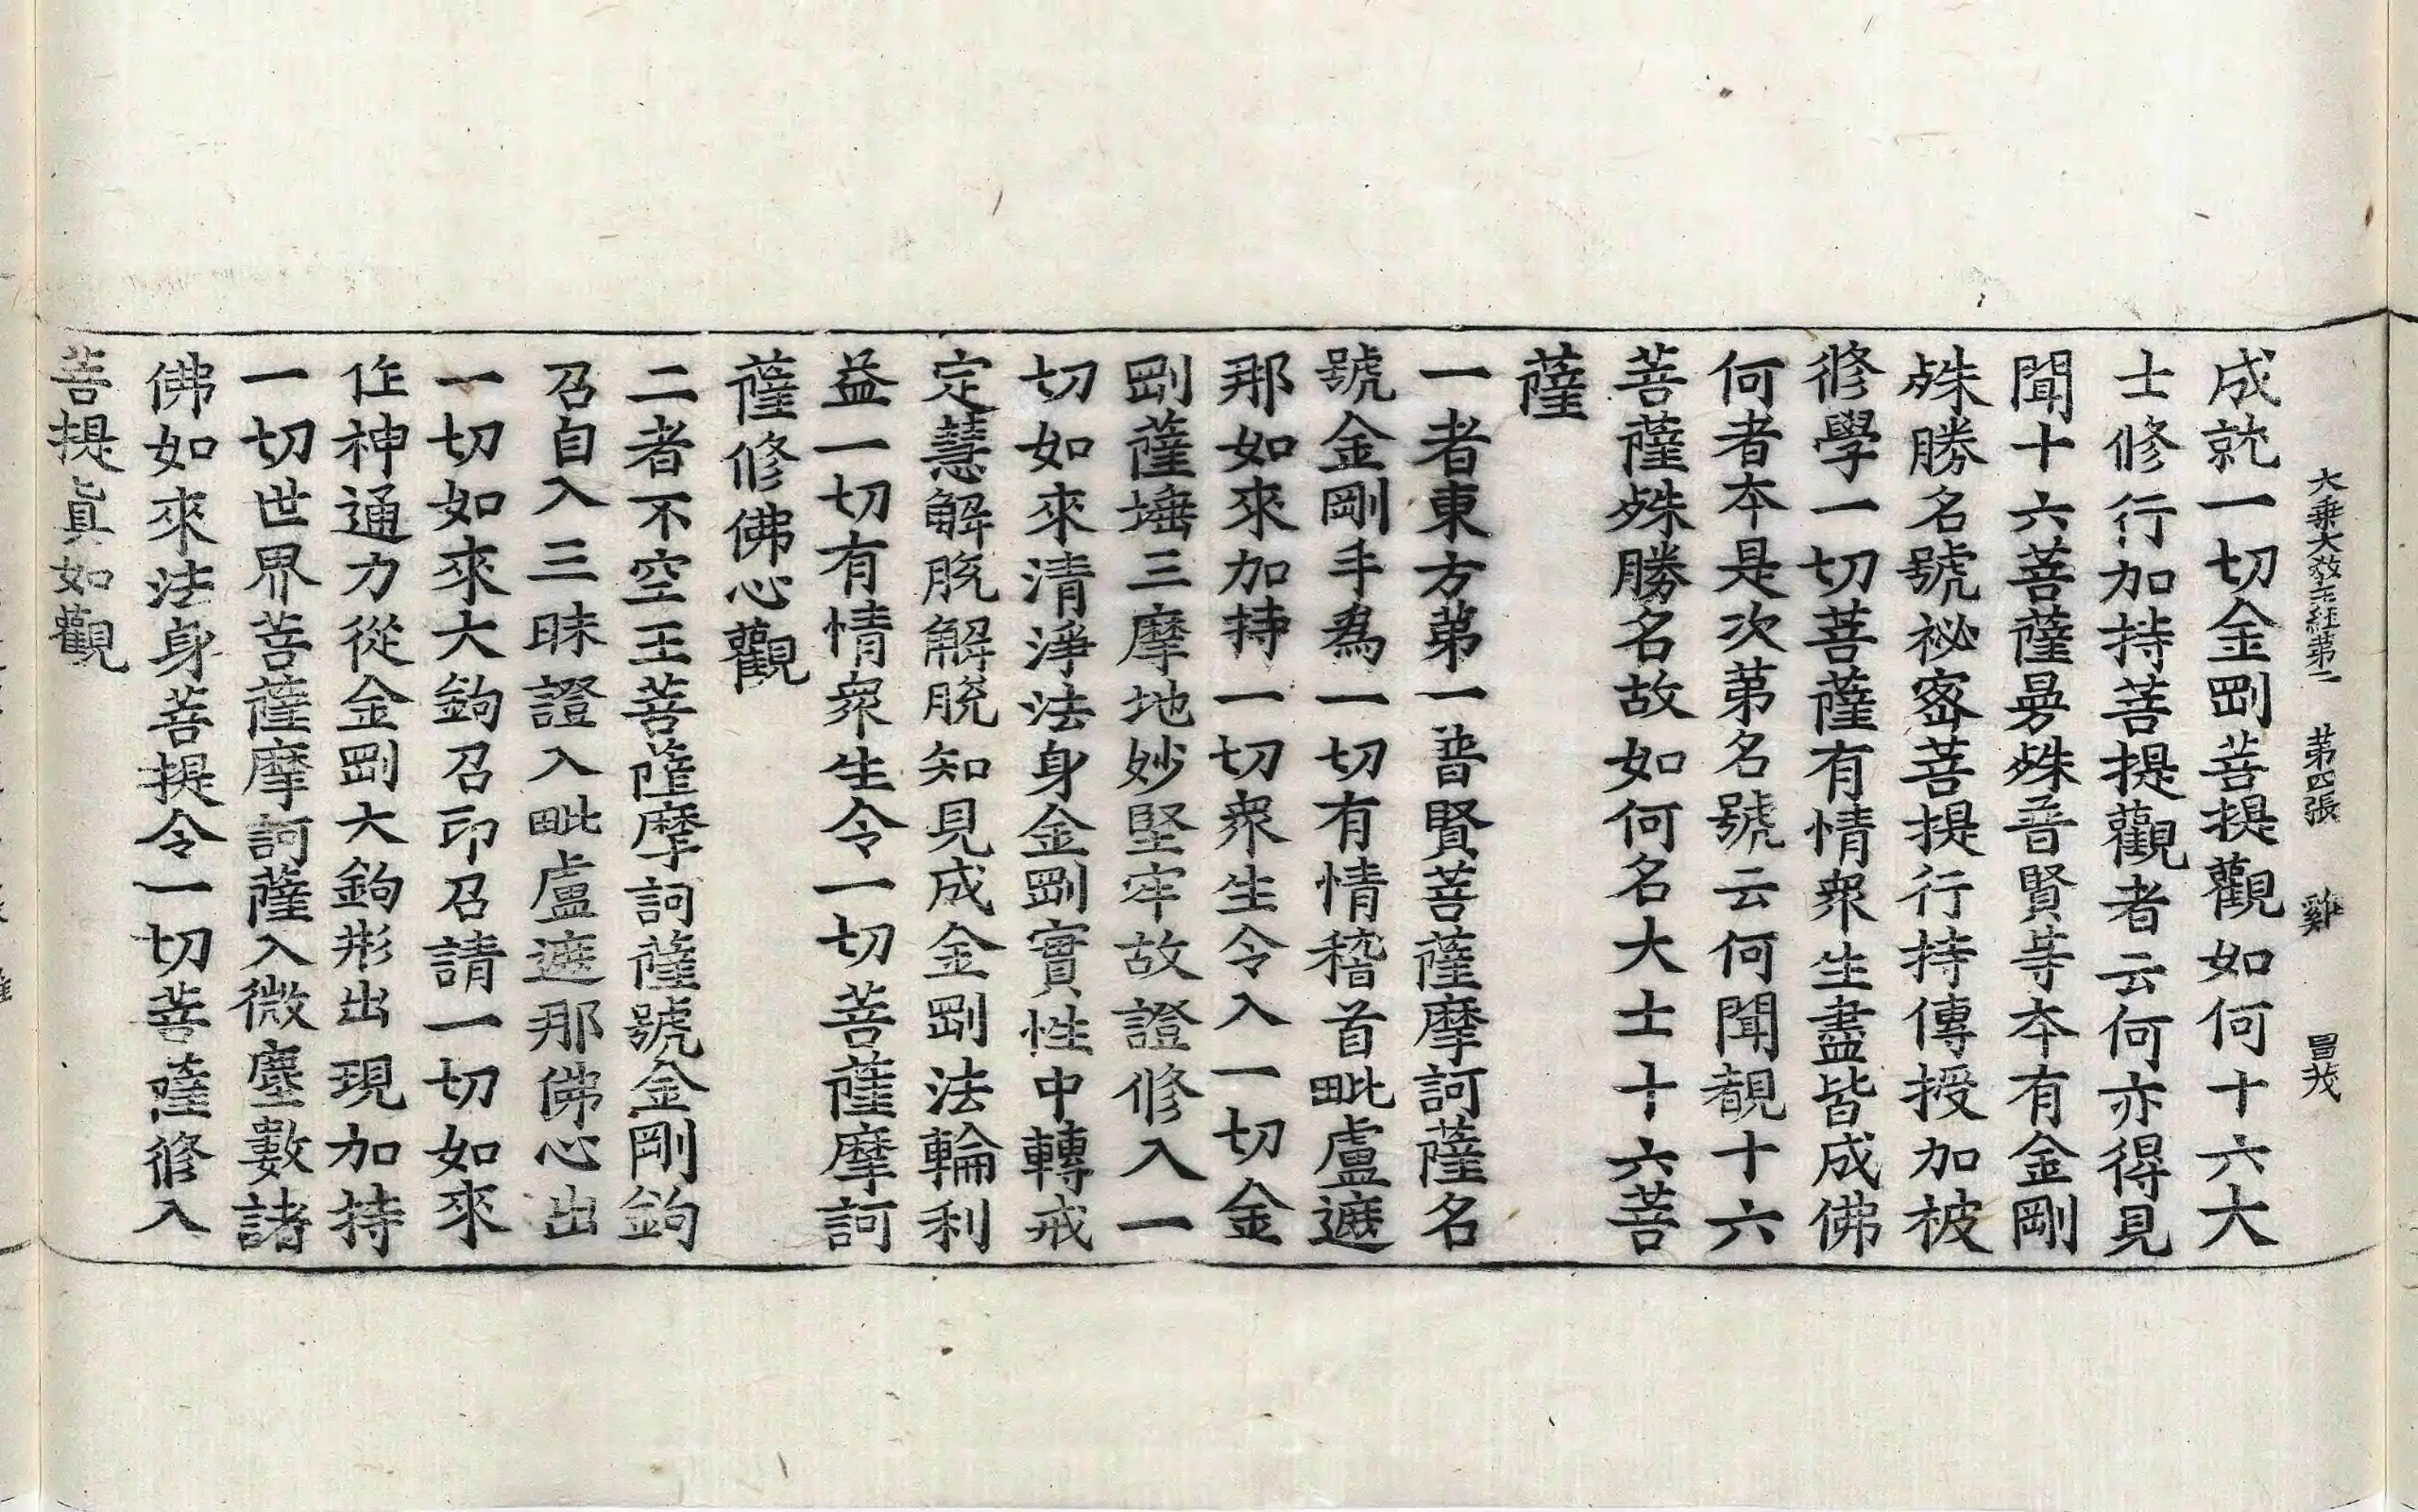 大乗大教王經第二 第四張 雞 冒茂
成就一切金剛菩提觀如何十六大
士修行加持菩提觀者云何亦得見
聞十六菩薩最殊普賢等本有金剛
殊勝名號祕密菩提行持傳授加被
修學一切菩薩有情衆生盡皆成佛
何者本是次第名號云何聞覩十六
菩薩殊勝名故如何名大士十六菩
薩
一者東方第一普賢菩薩摩訶薩名
號金剛手爲一切有情稽首毗盧遮
那如來加持一切衆生令入一切金
剛薩埵三摩地妙堅牢故證修入一
切如來清淨法身金剛實性中轉戒
定慧解脫解脫知見成金剛法輪利
益一切有情衆生令一切菩薩摩訶
薩修佛心觀
二者不空王菩薩摩訶薩號金剛鉤
召自入三昧證入毗盧遮那佛心出
一切如來大鉤召印召請一切如來
作神通力從金剛大鉤形出現加持
一切世界菩薩摩訶薩入微塵數諸
佛如來法身菩提令一切菩薩修入
菩提眞如觀